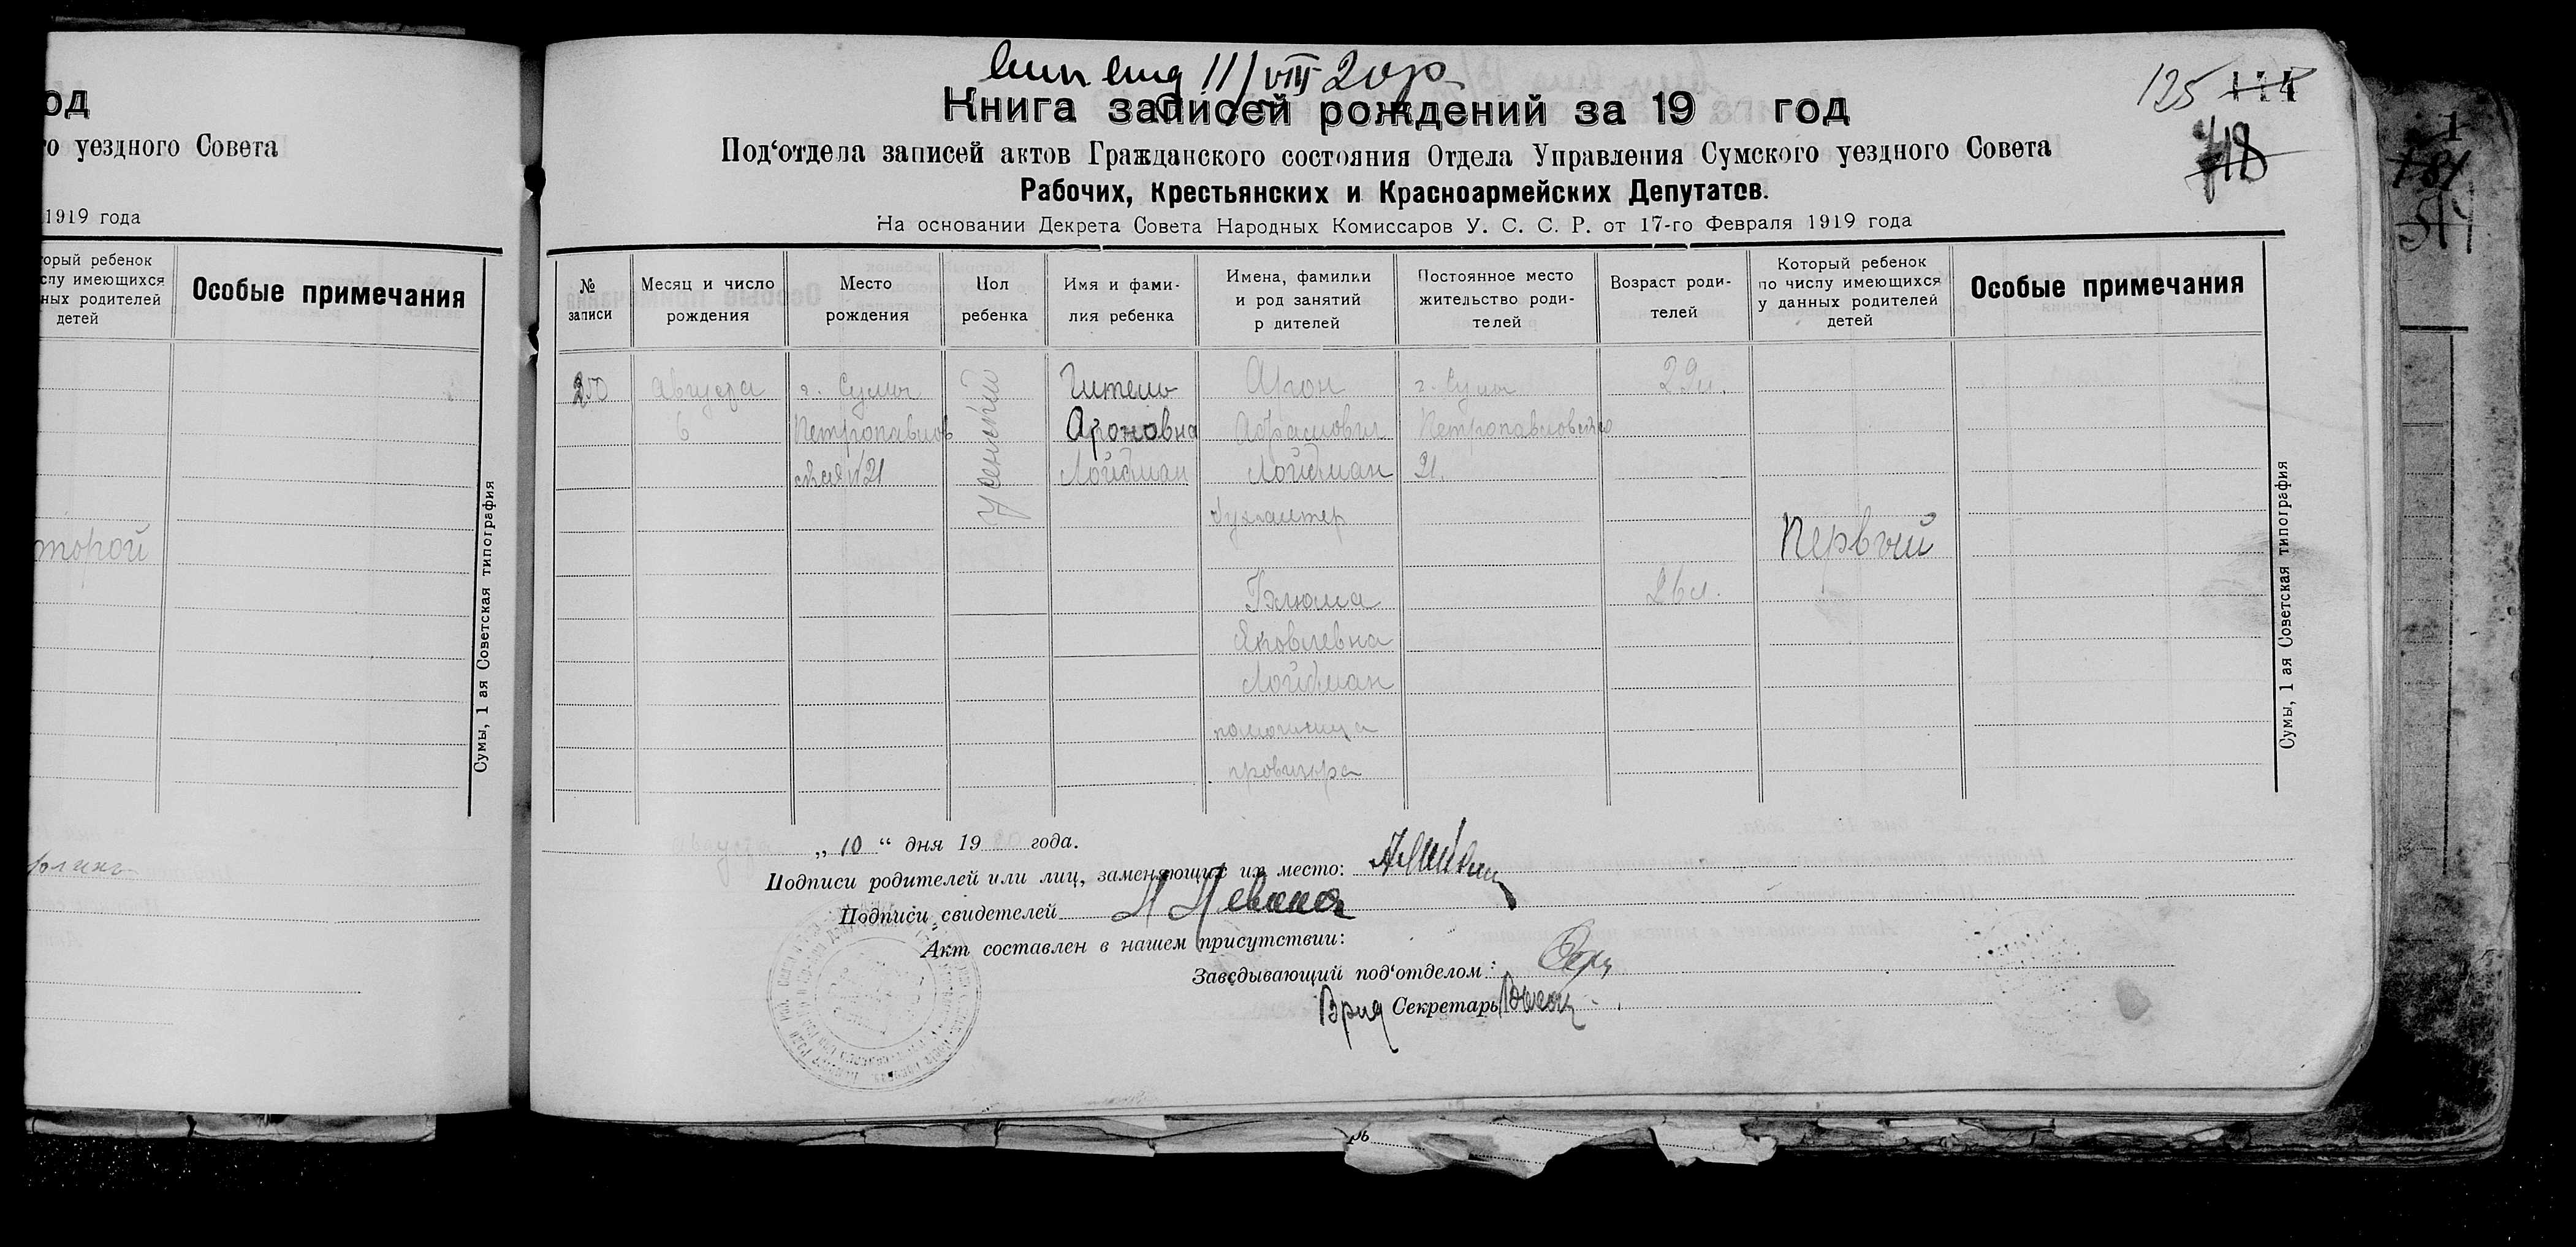 од
го уездного Совета
1919 года
Особые примечания
торой
Сумы, 1 ая Советская типография
11/VIII 20 г
125
Книга записей рождений за 19 год
Под‘отдела записей актов Гражданского состояния Отдела Управления Сумского уездного Совета
Рабочих, Крестьянских и Красноармейских Депутатов.
На основании Декрета Совета Народных Комиссаров У. С. С. Р. от 17-го Февраля 1919 года
№ записи
Месяц и число рождения
Место рождения
Пол ребенка
Имя и фами-
лия ребенка
Имена, фамилии
и род занятий
р дителей
Постоянное место
жительство роди-
телей
Возраст роди-
телей
Который ребенок
по числу имеющихся
у данных родителей
детей
Особые примечания
250
Августа
6
г. Сумы
Петропавлов
ская №21
женский
Гитель
Ароновна
Лойбман
Арон
Абрамович
Лойбман
бухгалтер
Блюма
Яковлевна
Лойбман
помощница
провизора
г. Сумы
Петропавловская
21.
29 л.
26 л.
Первый
Сумы, 1 ая Советская типография
августа „ 10 “ дня 19 20 года.
Подписи родителей или лиц, заменяющих их место:
Подписи свидетелей
Акт составлен в нашем присутствии:
Заведывающий под‘отделом:
Врид Секретарь